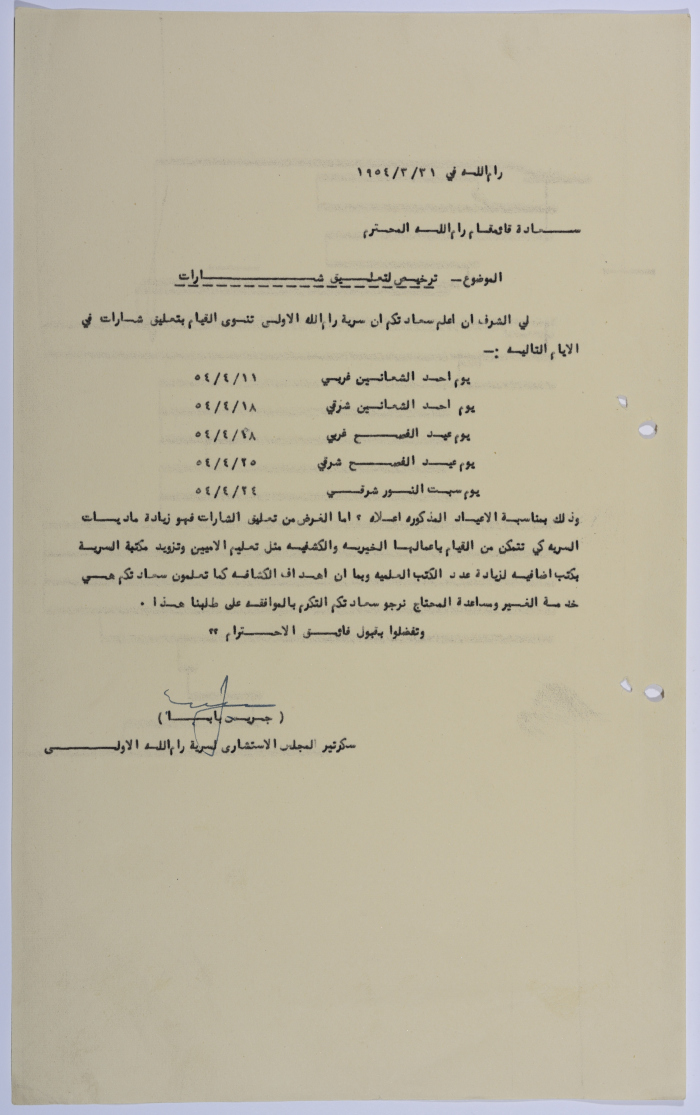 رام الله في ٣١/٣/١٩٥٤
سعادة قائمقام رام الله المحترم
الموضوع – ترخيص لتعليق شارات
لي الشرف ان اعلم سعادتكم ان سرية رام الله الاولى تنوى القيام بتعليق شارات في
الايام التاليه :–
يوم احد الشعانين غربي ٥٤/٤/١١
يوم احد الشعانين شرقي ٥٤/٤/١٨
يوم عيد الفصح غربي ٥٤/٤/١٨
يوم عيد الفصح شرقي ٥٤/٤/٢٥
يوم سبت النور شرقي ٥٤/٤/٢٤
وذلك بمناسبة الاعياد المذكوره اعلاه ؟ اما الغرض من تعليق الشارات فهو زيادة ماديات
السريه كي تتمكن من القيام باعمالها الخيريه والكشفيه مثل تعليم الاميين وتزويد مكتبة السرية
بكتب اضافيه لزيادة عدد الكتب العلميه وبما ان اهداف الكشافه كما تعلمون سعادتكم هي
خدمة الغير ومساعدة المحتاج نرجو سعادتكم التكرم بالموافقه على طلبنا هذا .
وتفضلوا بقبول فائق الاحترام ؟؟
( جريس بابا )
سكرتير المجلس الاستشارى لسرية رام الله الاولى